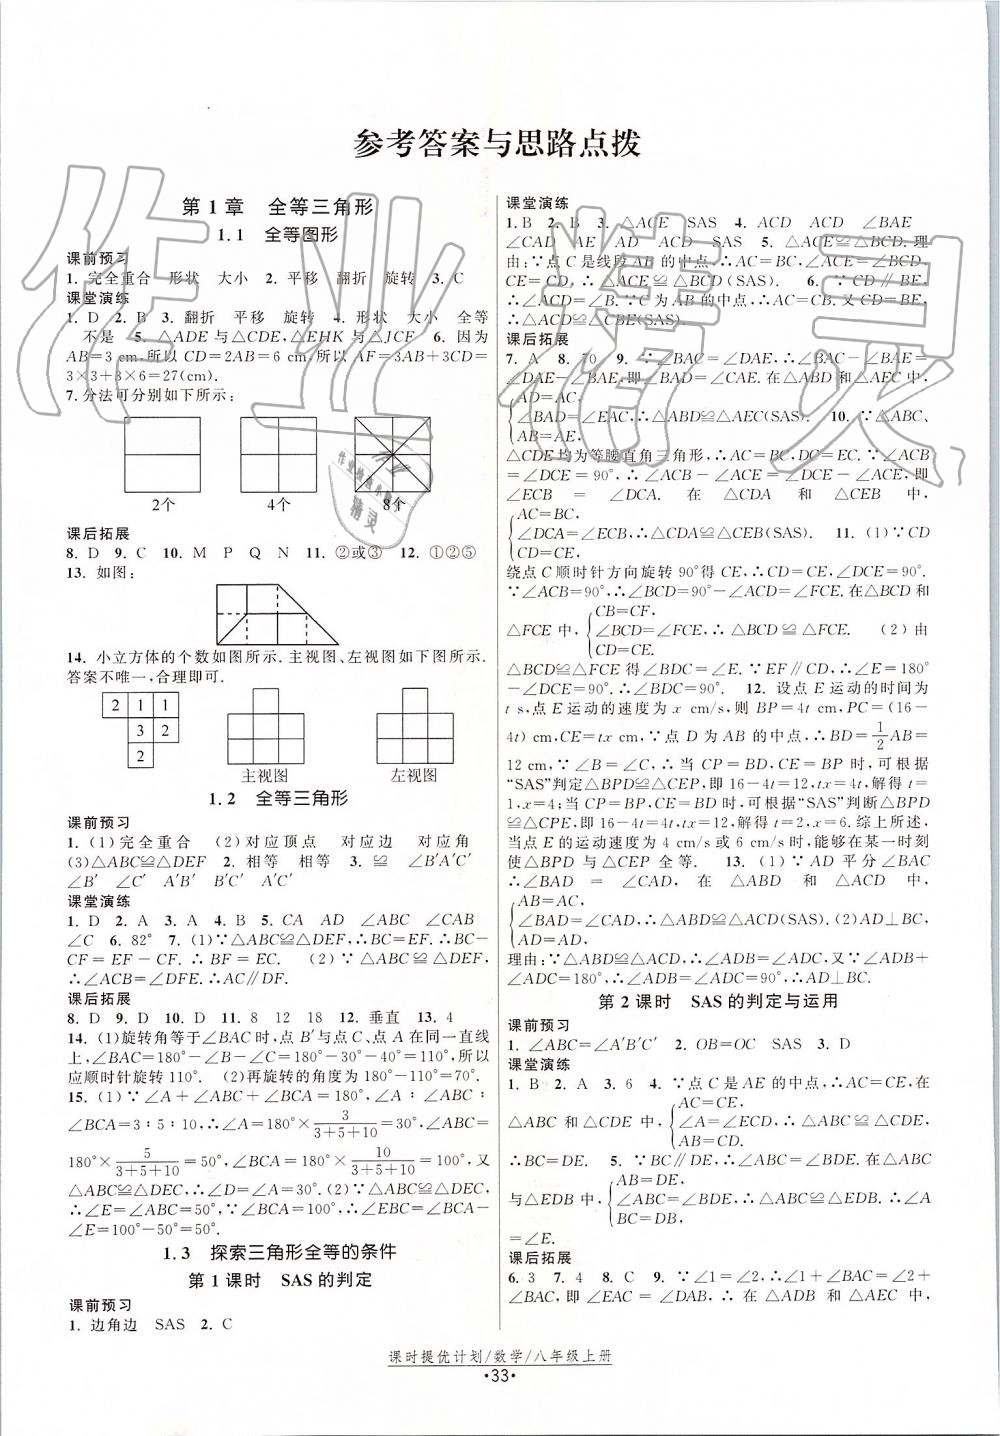 参考答案与思路点拨
第1章　全等三角形
1.1　全等图形
课前预习
1. 完全重合　形状　大小　2. 平移　翻折　旋转　3. C
课堂演练
1. D　2. B　3. 翻折　平移　旋转　4. 形状　大小　全等
不是　5. △ADE与△CDE,△EHK与△JCF　6. 因为
AB=3 cm,所以CD=2AB=6 cm,所以AF=3AB+3CD=
3×3+3×6=27(cm).
7. 分法可分别如下所示:
2个　4个　8个
课后拓展
8. D　9. C　10. M　P　Q　N　11. ②或③　12. ①②⑤
13. 如图:
14. 小立方体的个数如图所示.主视图、左视图如下图所示.
答案不唯一,合理即可.
2 1 1
3 2
2
主视图　左视图
1.2　全等三角形
课前预习
1. (1)完全重合　(2)对应顶点　对应边　对应角
(3)△ABC≌△DEF　2. 相等　相等　3. ≌　∠B′A′C′
∠B′　∠C′　A′B′　B′C′　A′C′
课堂演练
1. D　2. A　3. A　4. B　5. CA　AD　∠ABC　∠CAB
∠C　6. 82°　7. (1)∵△ABC≌△DEF,∴BC=EF.∴BC-
CF=EF-CF.∴BF=EC.　(2)∵△ABC≌△DEF,
∴∠ACB=∠DFE.∴AC∥DF.
课后拓展
8. D　9. D　10. D　11. 8　12　18　12. 垂直　13. 4
14. (1)旋转角等于∠BAC时,点B′与点C、点A在同一直线
上,∠BAC=180°-∠B-∠C=180°-30°-40°=110°,所以
应顺时针旋转110°.　(2)再旋转的角度为180°-110°=70°.
15. (1)∵∠A+∠ABC+∠BCA=180°,∠A∶∠ABC∶
∠BCA=3∶5∶10,∴∠A=180°×3/(3+5+10)=30°,∠ABC=
180°×5/(3+5+10)=50°,∠BCA=180°×10/(3+5+10)=100°,又
△ABC≌△DEC,∴∠D=∠A=30°.(2)∵△ABC≌△DEC,
∴∠E=∠ABC=50°,∵∠BCA=100°,∴∠EBC=∠BCA-
∠E=100°-50°=50°.
1.3　探索三角形全等的条件
第1课时　SAS的判定
课前预习
1. 边角边　SAS　2. C
课堂演练
1. B　2. B　3. △ACE　SAS　4. ACD　ACD　∠BAE
∠CAD　AE　AD　SAS　5. △ACE≌△BCD. 理
由:∵点C是线段AB的中点,∴AC=BC,∠ACE=∠BCD,
CE=CD,∴△ACE≌△BCD(SAS).　6. ∵CD∥BE,
∴∠ACD=∠B.∵C为AB的中点,∴AC=CB.又CD=BE,
∴△ACD≌△CBE(SAS).
课后拓展
7. A　8. 70　9. ∵∠BAC=∠DAE,∴∠BAC-∠BAE
=∠DAE-∠BAE,即∠BAD=∠CAE.在△ABD和△AEC中,
AD=AC,
∠BAD=∠EAC,∴△ABD≌△AEC(SAS).　10. ∵△ABC、
AB=AE,
△CDE均为等腰直角三角形,∴AC=BC,DC=EC.∵∠ACB
=∠DCE=90°,∴∠ACB-∠ACE=∠DCE-∠ACE,即
∠ECB=∠DCA. 在△ACD和△CEB中,
AC=BC,
∠DCA=∠ECB,∴△ACD≌△BCE(SAS).　11. (1)∵CD
CD=CE,
绕点C顺时针方向旋转90°得CE,∴CD=CE,∠DCE=90°.
∵∠ACB=90°,∴∠BCD=90°-∠ACD=∠FCE.在△BCD和
CB=CF,
△FCE中,∠BCD=∠FCE,∴△BCD≌△FCE.　(2)由
CD=CE,
△BCD≌△FCE得∠BDC=∠E.∵EF∥CD,∴∠E=180°
-∠DCE=90°.∴∠BDC=90°.　12. 设点E运动的时间为
t s,点E运动的速度为x cm/s,则BP=4t cm,PC=(16-
4t) cm,CE=tx cm,∵点D为AB的中点,∴BD=1/2AB=
12 cm,∵∠B=∠C,∴当CP=BD,CE=BP时,可根据
“SAS”判定△BPD≌△CEP,即16-4t=12,tx=4t,解得t=
1,x=4;当CP=BP,CE=BD时,可根据“SAS”判断△BPD
≌△CPE,即16-4t=4t,tx=12,解得t=2,x=6.综上所述,
当点E的运动速度为4 cm/s或6 cm/s时,能够在某一时刻
使△BPD与△CEP全等.　13. (1)∵AD平分∠BAC
∴∠BAD=∠CAD,在△ABD和△ACD中,
AB=AC,
∠BAD=∠CAD,∴△ABD≌△ACD(SAS).(2)AD⊥BC,
AD=AD,
理由:∵△ABD≌△ACD,∴∠ADB=∠ADC,又∵∠ADB+
∠ADC=180°,∴∠ADB=∠ADC=90°,∴AD⊥BC.
第2课时　SAS的判定与运用
课前预习
1. ∠ABC=∠A′B′C′　2. OB=OC　SAS　3. D
课堂演练
1. B　2. A　3. 6　4. ∵点C是AE的中点,∴AC=CE,在
AC=CE,
△ABC和△CDE中,∠A=∠ECD,∴△ABC≌△CDE,
AB=CD.
∴BC=DE.　5. ∵BC∥DE,∴∠ABC=∠BDE.在△ABC
AB=DE,
与△EDB中,∠ABC=∠BDE,∴△ABC≌△EDB.∴∠A
BC=DB,
=∠E.
课后拓展
6. 3　7. 4　8. C　9. ∵∠1=∠2,∴∠1+∠BAC=∠2+
∠BAC,即∠EAC=∠DAB,∴在△ADB和△AEC中,
课时提优计划/数学/八年级上册
·33·
作业精灵
作业检查小帮手
精灵